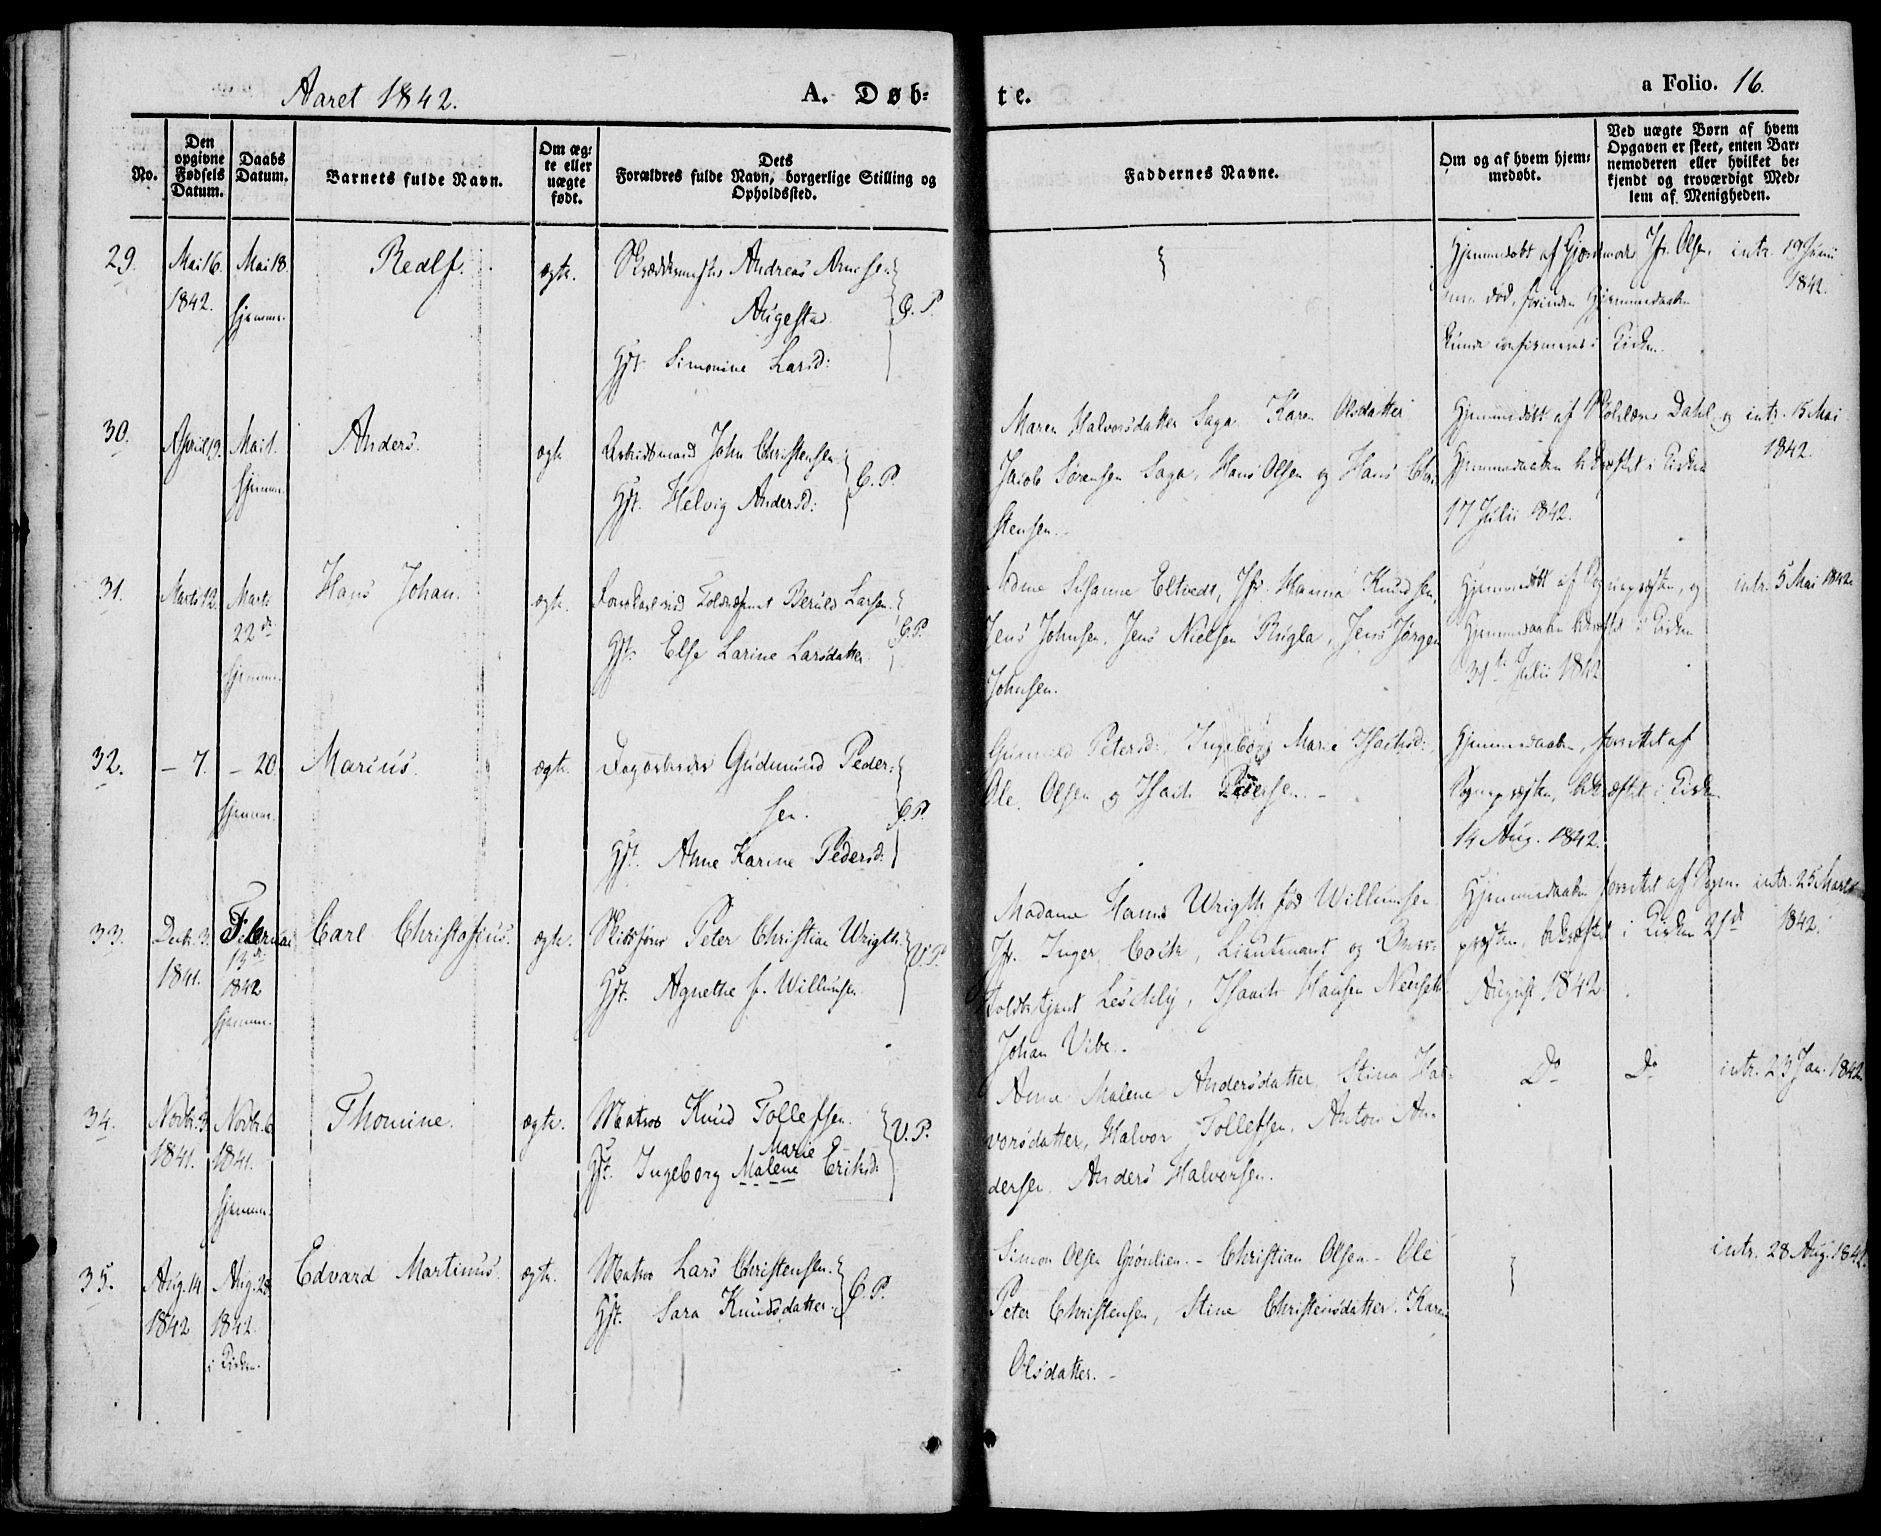 Aaret 1842.
A. Døb-
te.
a Folio. 16.
No.
Den
opgivne
Fødsels
Datum.
Daabs
Datum.
Barnets fulde Navn.
Om æg-
te eller
uægte
født.
Dets
Forældres fulde Navn, borgerlige Stilling og
Opholdssted.
Faddernes Navne.
Om og af hvem hjem-
medøbt.
Ved uægte Børn af hvem
Opgaven er skeet, enten Bar-
nemoderen eller hvilket be-
kjendt og troværdigt Med-
lem af Menigheden.
29.
Mai 16.
1842.
Mai 18.
hjemme.
Realf.
ægte.
Andreas
Augestad
Hst. Simonine Larsd:
C. P.
Hjemmedøbt af Jfr. Olsen
død, forinden Hjemmedaaben
kunde confirmeres i Kirken.
intr. 19 Juni
1842.
30.
April 19.
Mai 1.
hjemme.
Anders.
ægte
Arbeidsmand John Christensen
Hst. Helvig Andersd:
C. P.
Maren Halvorsdatter Saga. Karen Olsdatter
Jacob Sørensen Saga, Hans Olsen og Hans Chri-
stensen.
Hjemmedøbt af Dahl og
Hjemmedaaben bekræftet i Kirken
17 Julii 1842.
intr. 15 Mai
1842.
31.
Marts 12.
Marts
22de
hjemme.
Hans Johan.
ægte.
Larsen.
Hst. Else Larine Larsdatter.
C. P.
Mdme Susanne Eltvedt, Jfr. Hanna Knudsen,
Jens Johnsen, Jens Nielsen Rugla, Jens Jørgen
Johnsen.
Hjemmedøbt af Sognepræsten, og
Hjemmedaaben bekræftet i Kirken
31te Julii 1842
intr. 5 Mai 1842.
32.
– 7.
– 20.
hjemme.
Marius.
ægte.
Dagarbeider Gudmund Peder-
sen.
Hst. Anne Karine Pedersd:
C. P.
Gunnild Petersd:, Ingeborg Marie Isachsd:,
Ole Olsen og Isach Pedersen. –
Hjemmedaaben, forrettet af
Sognepræsten, bekræftet i Kirken
14 Aug. 1842.
33.
Decbr. 3.
1841.
Februar
13de
1842
hjemme.
Carl Christofius.
ægte.
Skibsfører Peter Christian Wrigth.
Hst. Agnethe f. Willumsen
V. P.
Madame Hanna Wrigth fød Willumsen
Jfr. Inger Coith, Lieutenant og Over-
toldbetjent Leschly, Isach Hansen
Johan Vibe.
Hjemmedaaben forrettet af Sogne-
præsten, bekræftet i Kirken 21de
August 1842
intr. 25 Marts
1842.
34.
Novbr. 3.
1841.
Novbr. 6
1841.
hjemme.
Thomine.
ægte.
Matros Knud Tollefsen.
Marie
Hst. Ingeborg Malene Eriksd:
V. P.
Anne Malene Andersdatter, Stina Hal-
vorsdatter, Halvor Tollefsen, Anton An-
dersen, Anders Halvorsen.
Do
Do
intr. 23 Jan. 1842.
35.
Aug. 14
1842
Aug. 28
1842.
i Kirken.
Edvard Martinus.
ægte.
Matros Lars Christensen.
Hst. Sara Knudsdatter.
C. P.
Simon Olsen Grønlien. – Christian Olsen – Ole
Peter Christensen, Stine Christensdatter. Karen
Olsdatter. –
intr. 28 Aug. 1842.